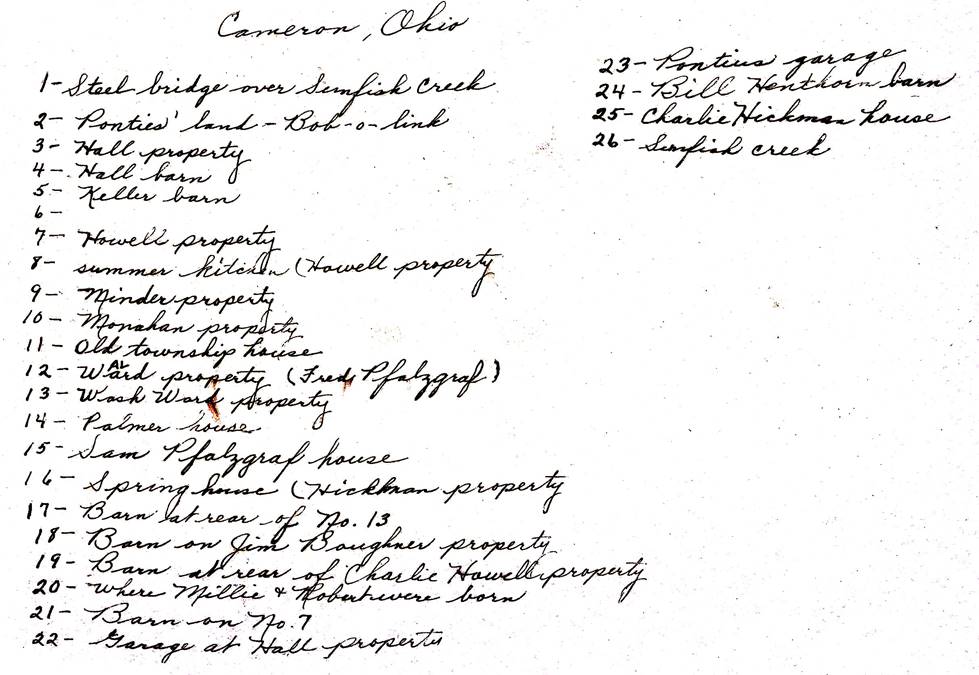 Cameron, Ohio
1- Steel bridge over Sunfish creek
2- Ponties' land - Bob-o-link
3- Hall property
4- Hall barn
5- Keller barn
6-
7- Howell property
8- summer kitchen (Howell property
9- Minder property
10- Monahan property
11- Old township house
12- Ward property (Fred Pfalzgraf)
13- Wash Ward property
14- Palmer house
15- Sam Pfalzgraf house
16- Spring house (Hickman property
17- Barn at rear of No. 13
18- Barn on Jim Boughner property
19- Barn at rear of Charlie Howell property
20- Where Millie & Robert were born
21- Barn on No. 7
22- Garage at Hall property
23- Pontius garage
24- Bill Henthorn barn
25- Charlie Hickman house
26- Sunfish creek